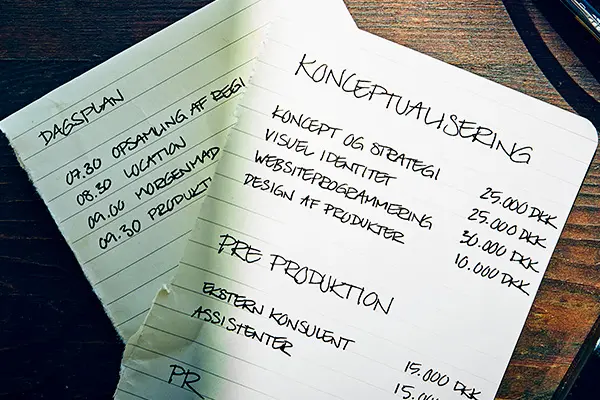 DAGSPLAN
07.30 OPSAMLING AF REGI
08.30 LOCATION
09.00 MORGENMAD
09.30 PRODUKTI
KONCEPTUALISERING
KONCEPT OG STRATEGI 25.000 DKK
VISUEL IDENTITET 25.000 DKK
WEBSITEPROGRAMMERING 30.000 DKK
DESIGN AF PRODUKTER 10.000 DKK
PRE PRODUKTION
EKSTERN KONSULENT 15.000 DKK
ASSISTENTER 15.
PR